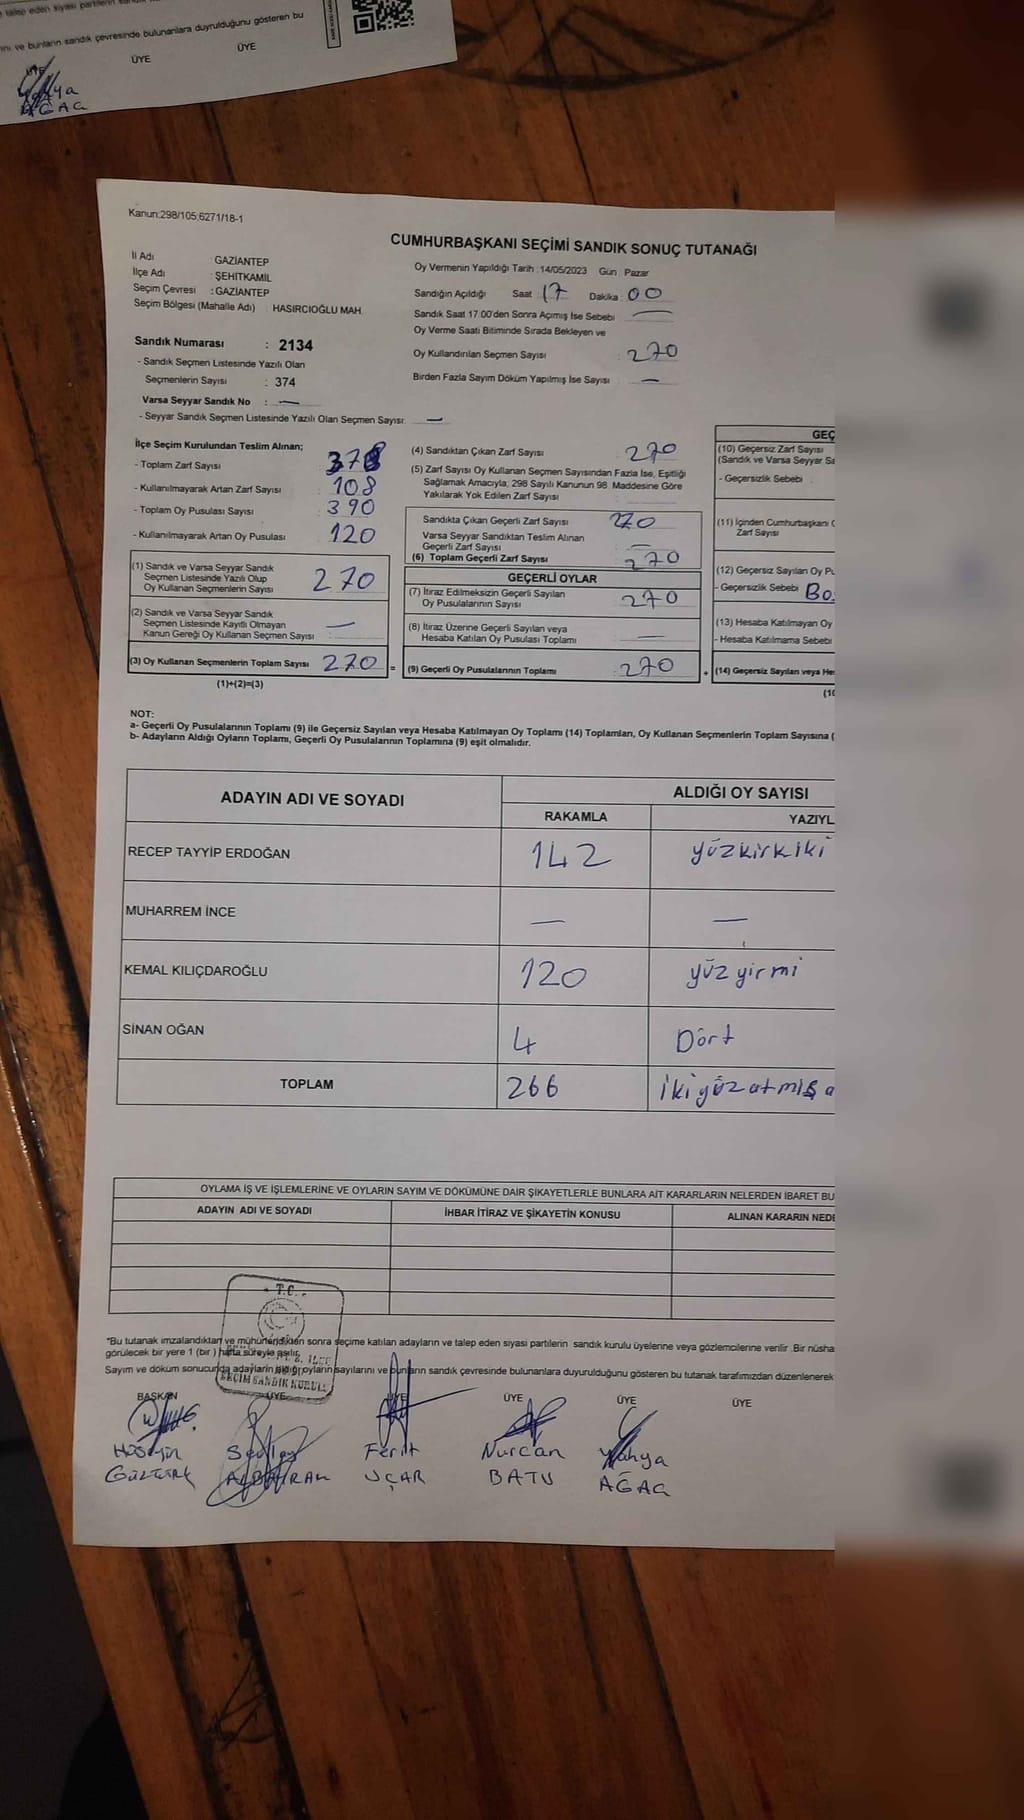 talep eden siyasi partilerin
ve bunların sandık çevresinde bulunanlara duyurulduğunu gösteren bu
ÜYE
ÜYE
ÜYE
Yahya
AĞAÇ
Kanun:298/105;6271/18-1
CUMHURBAŞKANI SEÇİMİ SANDIK SONUÇ TUTANAĞI
İl Adı GAZİANTEP
İlçe Adı : ŞEHİTKAMİL
Seçim Çevresi : GAZİANTEP
Seçim Bölgesi (Mahalle Adı) HASIRCIOĞLU MAH.
Sandık Numarası : 2134
- Sandık Seçmen Listesinde Yazılı Olan
Seçmenlerin Sayısı : 374
Varsa Seyyar Sandık No : —
- Seyyar Sandık Seçmen Listesinde Yazılı Olan Seçmen Sayısı: —
Oy Vermenin Yapıldığı Tarih :14/05/2023 Gün : Pazar
Sandığın Açıldığı Saat : 17 Dakika : 00
Sandık Saat 17.00'den Sonra Açımış İse Sebebi —
Oy Verme Saati Bitiminde Sırada Bekleyen ve
Oy Kullandırılan Seçmen Sayısı : 270
Birden Fazla Sayım Döküm Yapılmış İse Sayısı : —
İlçe Seçim Kurulundan Teslim Alınan;
- Toplam Zarf Sayısı : 378
- Kullanılmayarak Artan Zarf Sayısı : 108
- Toplam Oy Pusulası Sayısı : 390
- Kullanılmayarak Artan Oy Pusulası : 120
(1) Sandık ve Varsa Seyyar Sandık
Seçmen Listesinde Yazılı Olup
Oy Kullanan Seçmenlerin Sayısı : 270
(2) Sandık ve Varsa Seyyar Sandık
Seçmen Listesinde Kayıtlı Olmayan
Kanun Gereği Oy Kullanan Seçmen Sayısı : —
(3) Oy Kullanan Seçmenlerin Toplam Sayısı : 270 =
(1)+(2)=(3)
(4) Sandıktan Çıkan Zarf Sayısı : 270
(5) Zarf Sayısı Oy Kullanan Seçmen Sayısından Fazla İse, Eşitliği
Sağlamak Amacıyla, 298 Sayılı Kanunun 98. Maddesine Göre
Yakılarak Yok Edilen Zarf Sayısı
Sandıkta Çıkan Geçerli Zarf Sayısı : 270
Varsa Seyyar Sandıktan Teslim Alınan
Geçerli Zarf Sayısı : —
(6) Toplam Geçerli Zarf Sayısı : 270
GEÇERLİ OYLAR
(7) İtiraz Edilmeksizin Geçerli Sayılan
Oy Pusulalarının Sayısı : 270
(8) İtiraz Üzerine Geçerli Sayılan veya
Hesaba Katılan Oy Pusulası Toplamı : —
(9) Geçerli Oy Pusulalarının Toplamı : 270 +
GEÇ
(10) Geçersiz Zarf Sayısı
(Sandık ve Varsa Seyyar Sa
- Geçersizlik Sebebi :
(11) İçinden Cumhurbaşkanı
Zarf Sayısı
(12) Geçersiz Sayılan Oy Pu
- Geçersizlik Sebebi Bo
(13) Hesaba Katılmayan Oy
- Hesaba Katılmama Sebebi
(14) Geçersiz Sayılan veya He
NOT:
a- Geçerli Oy Pusulalarının Toplamı (9) ile Geçersiz Sayılan veya Hesaba Katılmayan Oy Toplamı (14) Toplamları, Oy Kullanan Seçmenlerin Toplam Sayısına (
b- Adayların Aldığı Oyların Toplamı, Geçerli Oy Pusulalarının Toplamına (9) eşit olmalıdır.
ADAYIN ADI VE SOYADI ALDIĞI OY SAYISI
RAKAMLA YAZIYL
RECEP TAYYİP ERDOĞAN 142 yüzkırkiki
MUHARREM İNCE — —
KEMAL KILIÇDAROĞLU 120 yüz yirmi
SİNAN OĞAN 4 Dört
TOPLAM 266 ikiyüzatmış a
OYLAMA İŞ VE İŞLEMLERİNE VE OYLARIN SAYIM VE DÖKÜMÜNE DAİR ŞİKAYETLERLE BUNLARA AİT KARARLARIN NELERDEN İBARET BU
ADAYIN ADI VE SOYADI İHBAR İTİRAZ VE ŞİKAYETİN KONUSU ALINAN KARARIN NEDE
T.C.
SEÇİM SANDIK KURULU
*Bu tutanak imzalandıktan ve mühürlendikten sonra seçime katılan adayların ve talep eden siyasi partilerin sandık kurulu üyelerine veya gözlemcilerine verilir .Bir nüsha
görülecek bir yere 1 (bir ) hafta süreyle asılır.
Sayım ve döküm sonucunda adayların aldığı oyların sayılarını ve bunların sandık çevresinde bulunanlara duyurulduğunu gösteren bu tutanak tarafımızdan düzenlenerek
BAŞKAN ÜYE ÜYE ÜYE ÜYE ÜYE
Ferit Nurcan Yahya
UÇAR BATU AĞAÇ